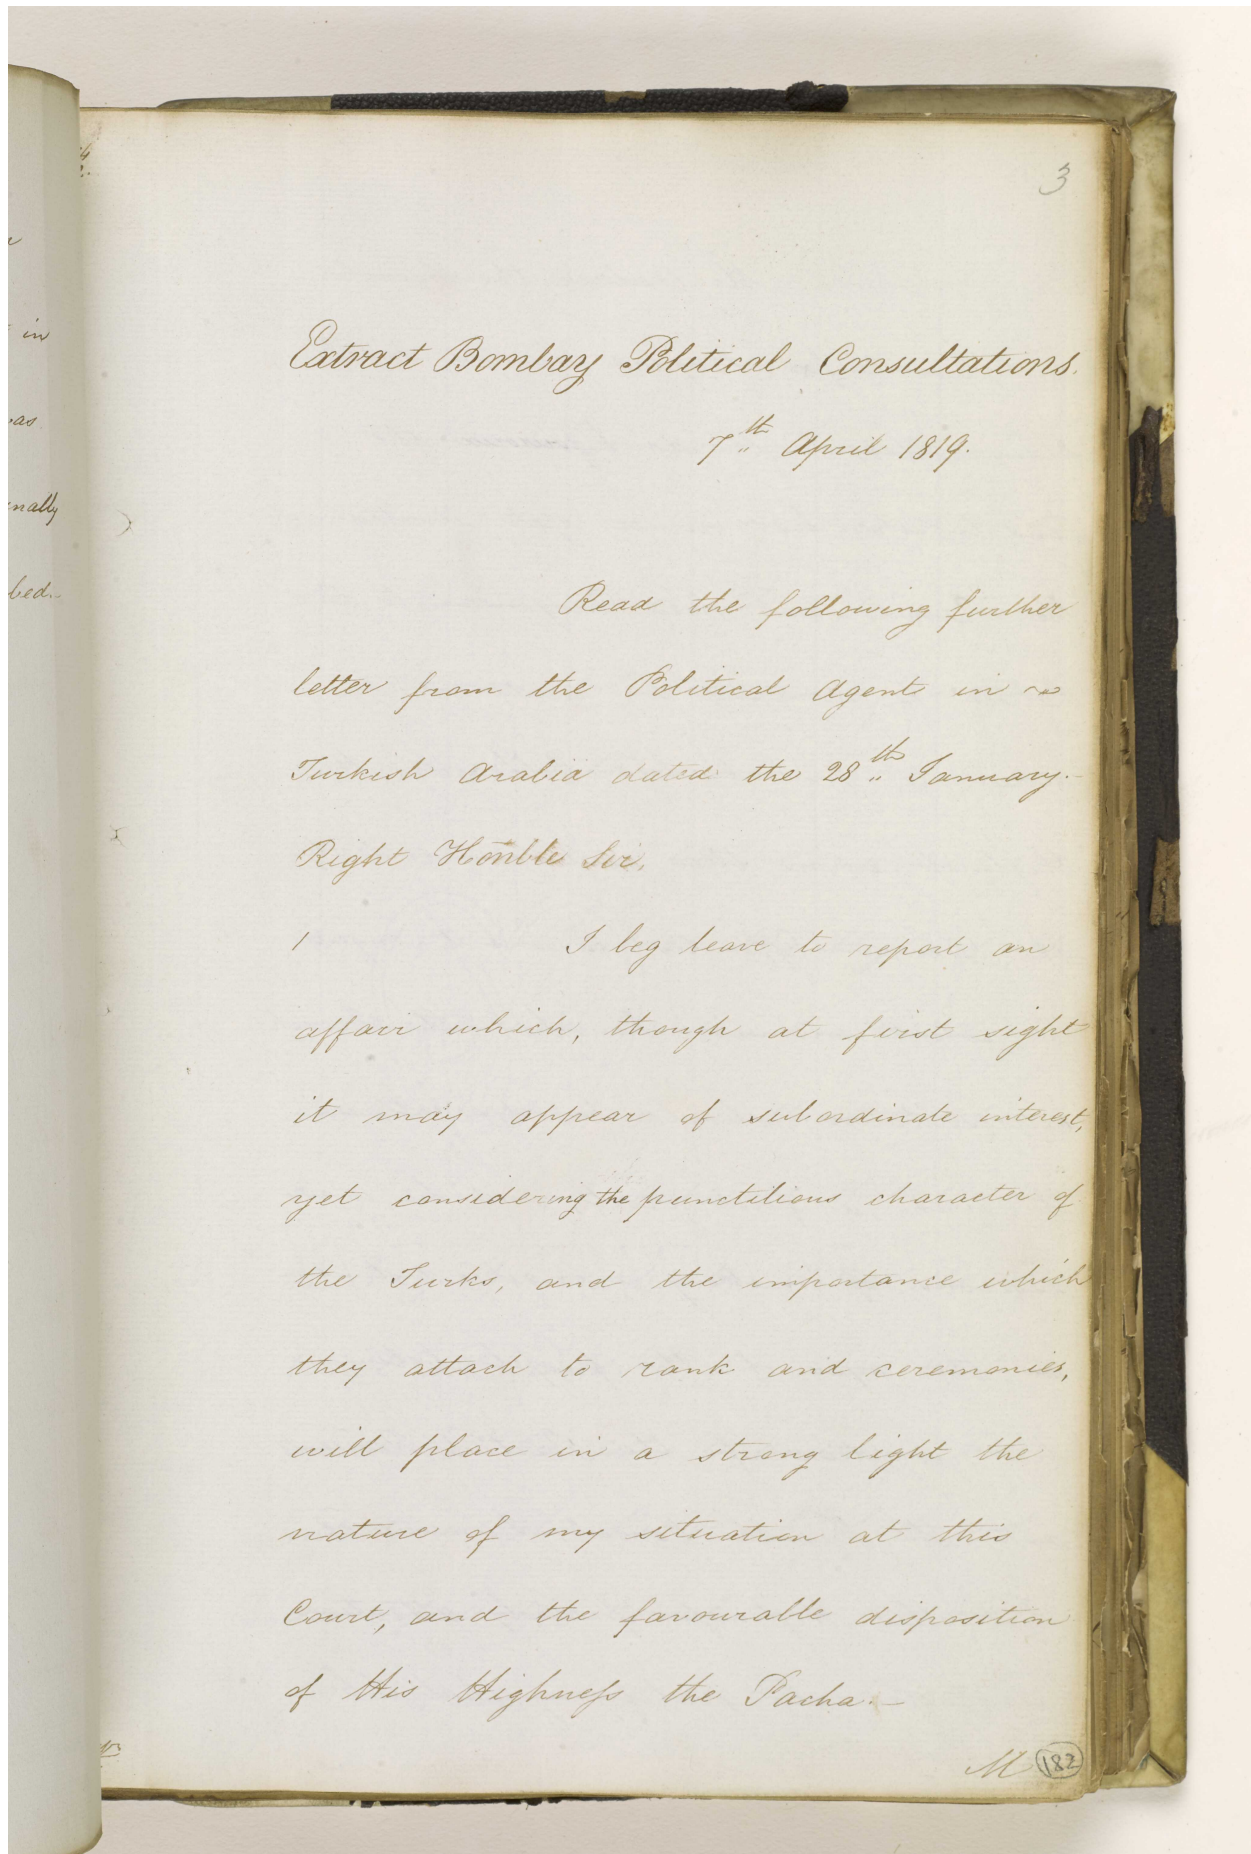 3
Extract Bombay Political Consultations.
7th April 1819.
Read the following further
letter from the Political Agent in
Turkish Arabia dated the 28th January.-
Right Honble Sir,
1 I beg leave to report an
affair which, though at first sight
it may appear of subordinate interest,
yet considering the punctilious character of
the Turks, and the importance which
they attach to rank and ceremonies,
will place in a strong light the
nature of my situation at this
Court, and the favourable disposition
of His Highness the Pacha.-
M 182
in
as
nally
bed.-